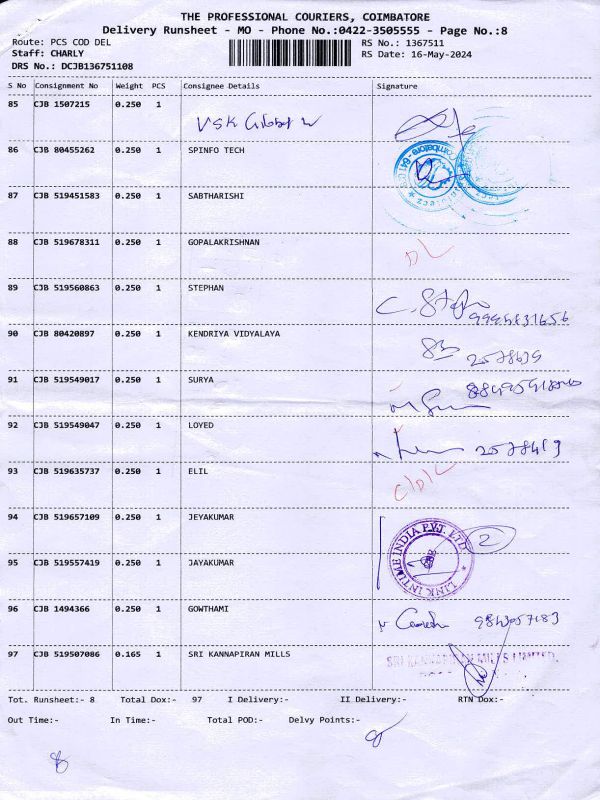 THE PROFESSIONAL COURIERS, COIMBATORE
Delivery Runsheet - MO - Phone No.:0422-3505555 - Page No.:8
Route: PCS COD DEL RS No.: 1367511
Staff: CHARLY RS Date: 16-May-2024
DRS No.: DCJB136751108
S No Consignment No Weight PCS Consignee Details Signature
85 CJB 1507215 0.250 1
VSK
86 CJB 80455262 0.250 1 SPINFO TECH
87 CJB 519451583 0.250 1 SABTHARISHI
88 CJB 519678311 0.250 1 GOPALAKRISHNAN DL
89 CJB 519560863 0.250 1 STEPHAN
90 CJB 80420897 0.250 1 KENDRIYA VIDYALAYA
91 CJB 519549017 0.250 1 SURYA
92 CJB 519549047 0.250 1 LOYED
93 CJB 519635737 0.250 1 ELIL
94 CJB 519657109 0.250 1 JEYAKUMAR
LINK INTIME INDIA PVT. LTD. 2
95 CJB 519557419 0.250 1 JAYAKUMAR
96 CJB 1494366 0.250 1 GOWTHAMI
97 CJB 519507086 0.165 1 SRI KANNAPIRAN MILLS SRI KANNAPIRAN MILLS LIMITED
Tot. Runsheet:- 8 Total Dox:- 97 I Delivery:- II Delivery:- RTN Dox:-
Out Time:- In Time:- Total POD:- Delvy Points:-